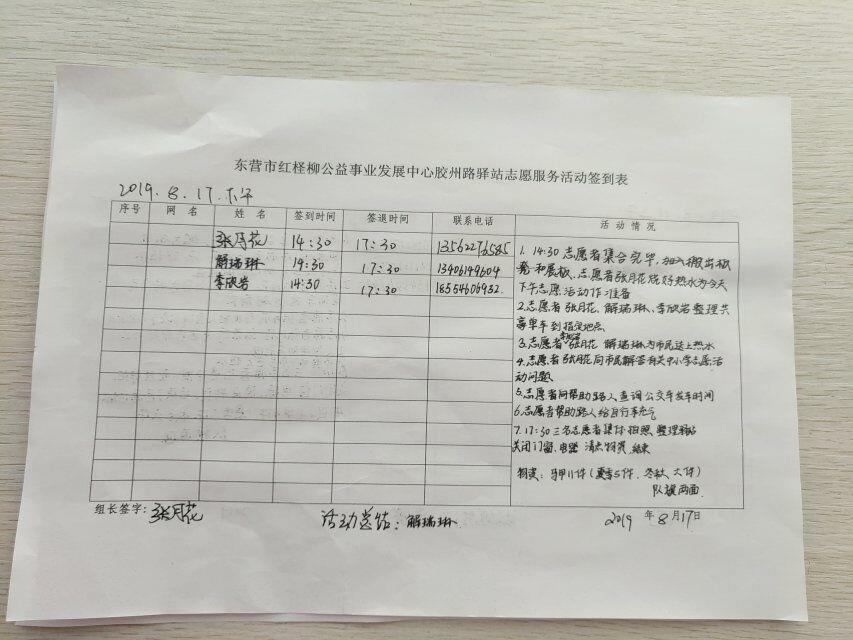 东营市红柽柳公益事业发展中心胶州路驿站志愿服务活动签到表
2019.8.17.下午
序号 网名 姓名 签到时间 签退时间 联系电话 活动情况
张月花 14:30 17:30 13562276585
解瑞琳 14:30 17:30 13406149604
李欣岩 14:30 17:30 18554606932
1. 14:30志愿者集合完毕,加入搬出板
凳和展板、志愿者张月花烧好热水为今天
下午志愿活动作准备
2.志愿者张月花、解瑞琳、李欣岩整理共
享单车到指定地点
李欣岩
3.志愿者张月花 解瑞琳为市民送上热水
4.志愿者张月花向市民解答有关中小学志愿活
动问题
5.志愿者向帮助路人查询公交车发车时间
6.志愿者帮助路人给自行车充气
7.17:30三名志愿者集体拍照、整理驿站
关闭门窗、电器 清点物资、结束
物资:马甲11件(夏季5件、冬秋、六件)
队旗两面
组长签字:张月花 活动总结:解瑞琳 2019年8月17日